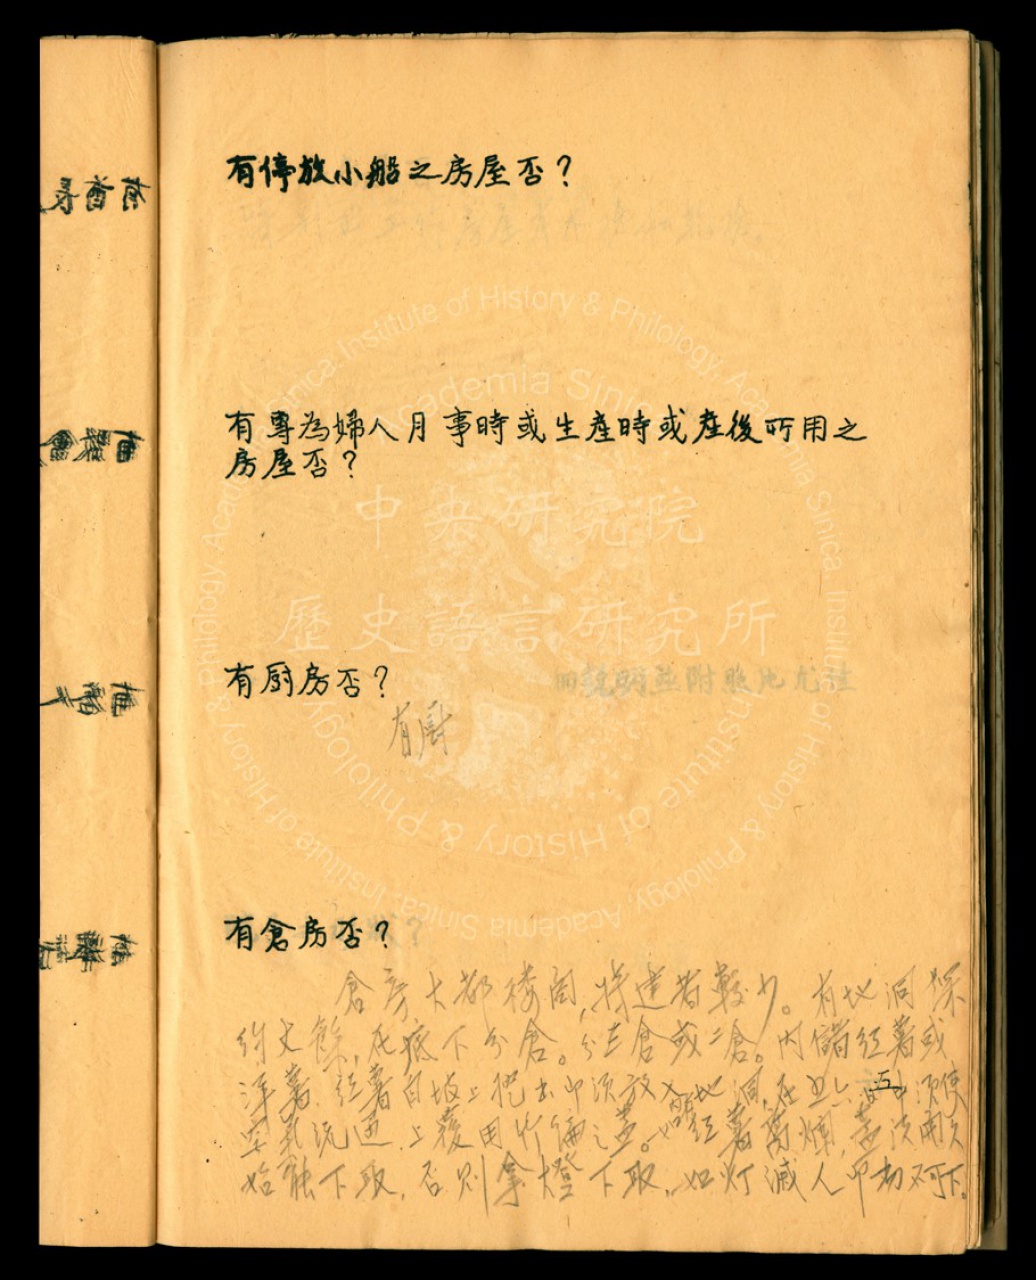 有停放小船之房屋否？
有專為婦人月事時或生產時或產後所用之
房屋否？
有厨房否？
有厨
有倉房否？
倉房大都楼阁,特建者較少。有地洞深
约丈餘,在底下分倉。分三倉或二倉。内儲红薯或
洋薯,红薯自坡上挖出即须放入地洞,在五六日中须使
空氣流通,上蓋用竹编之蓋。如红薯薯爛,蓋须用久
始能下取,否则拿燈下取,如灯滅人即切不可下。
中央研究院
歷史語言研究所
Institute of History & Philology, Academia Sinica